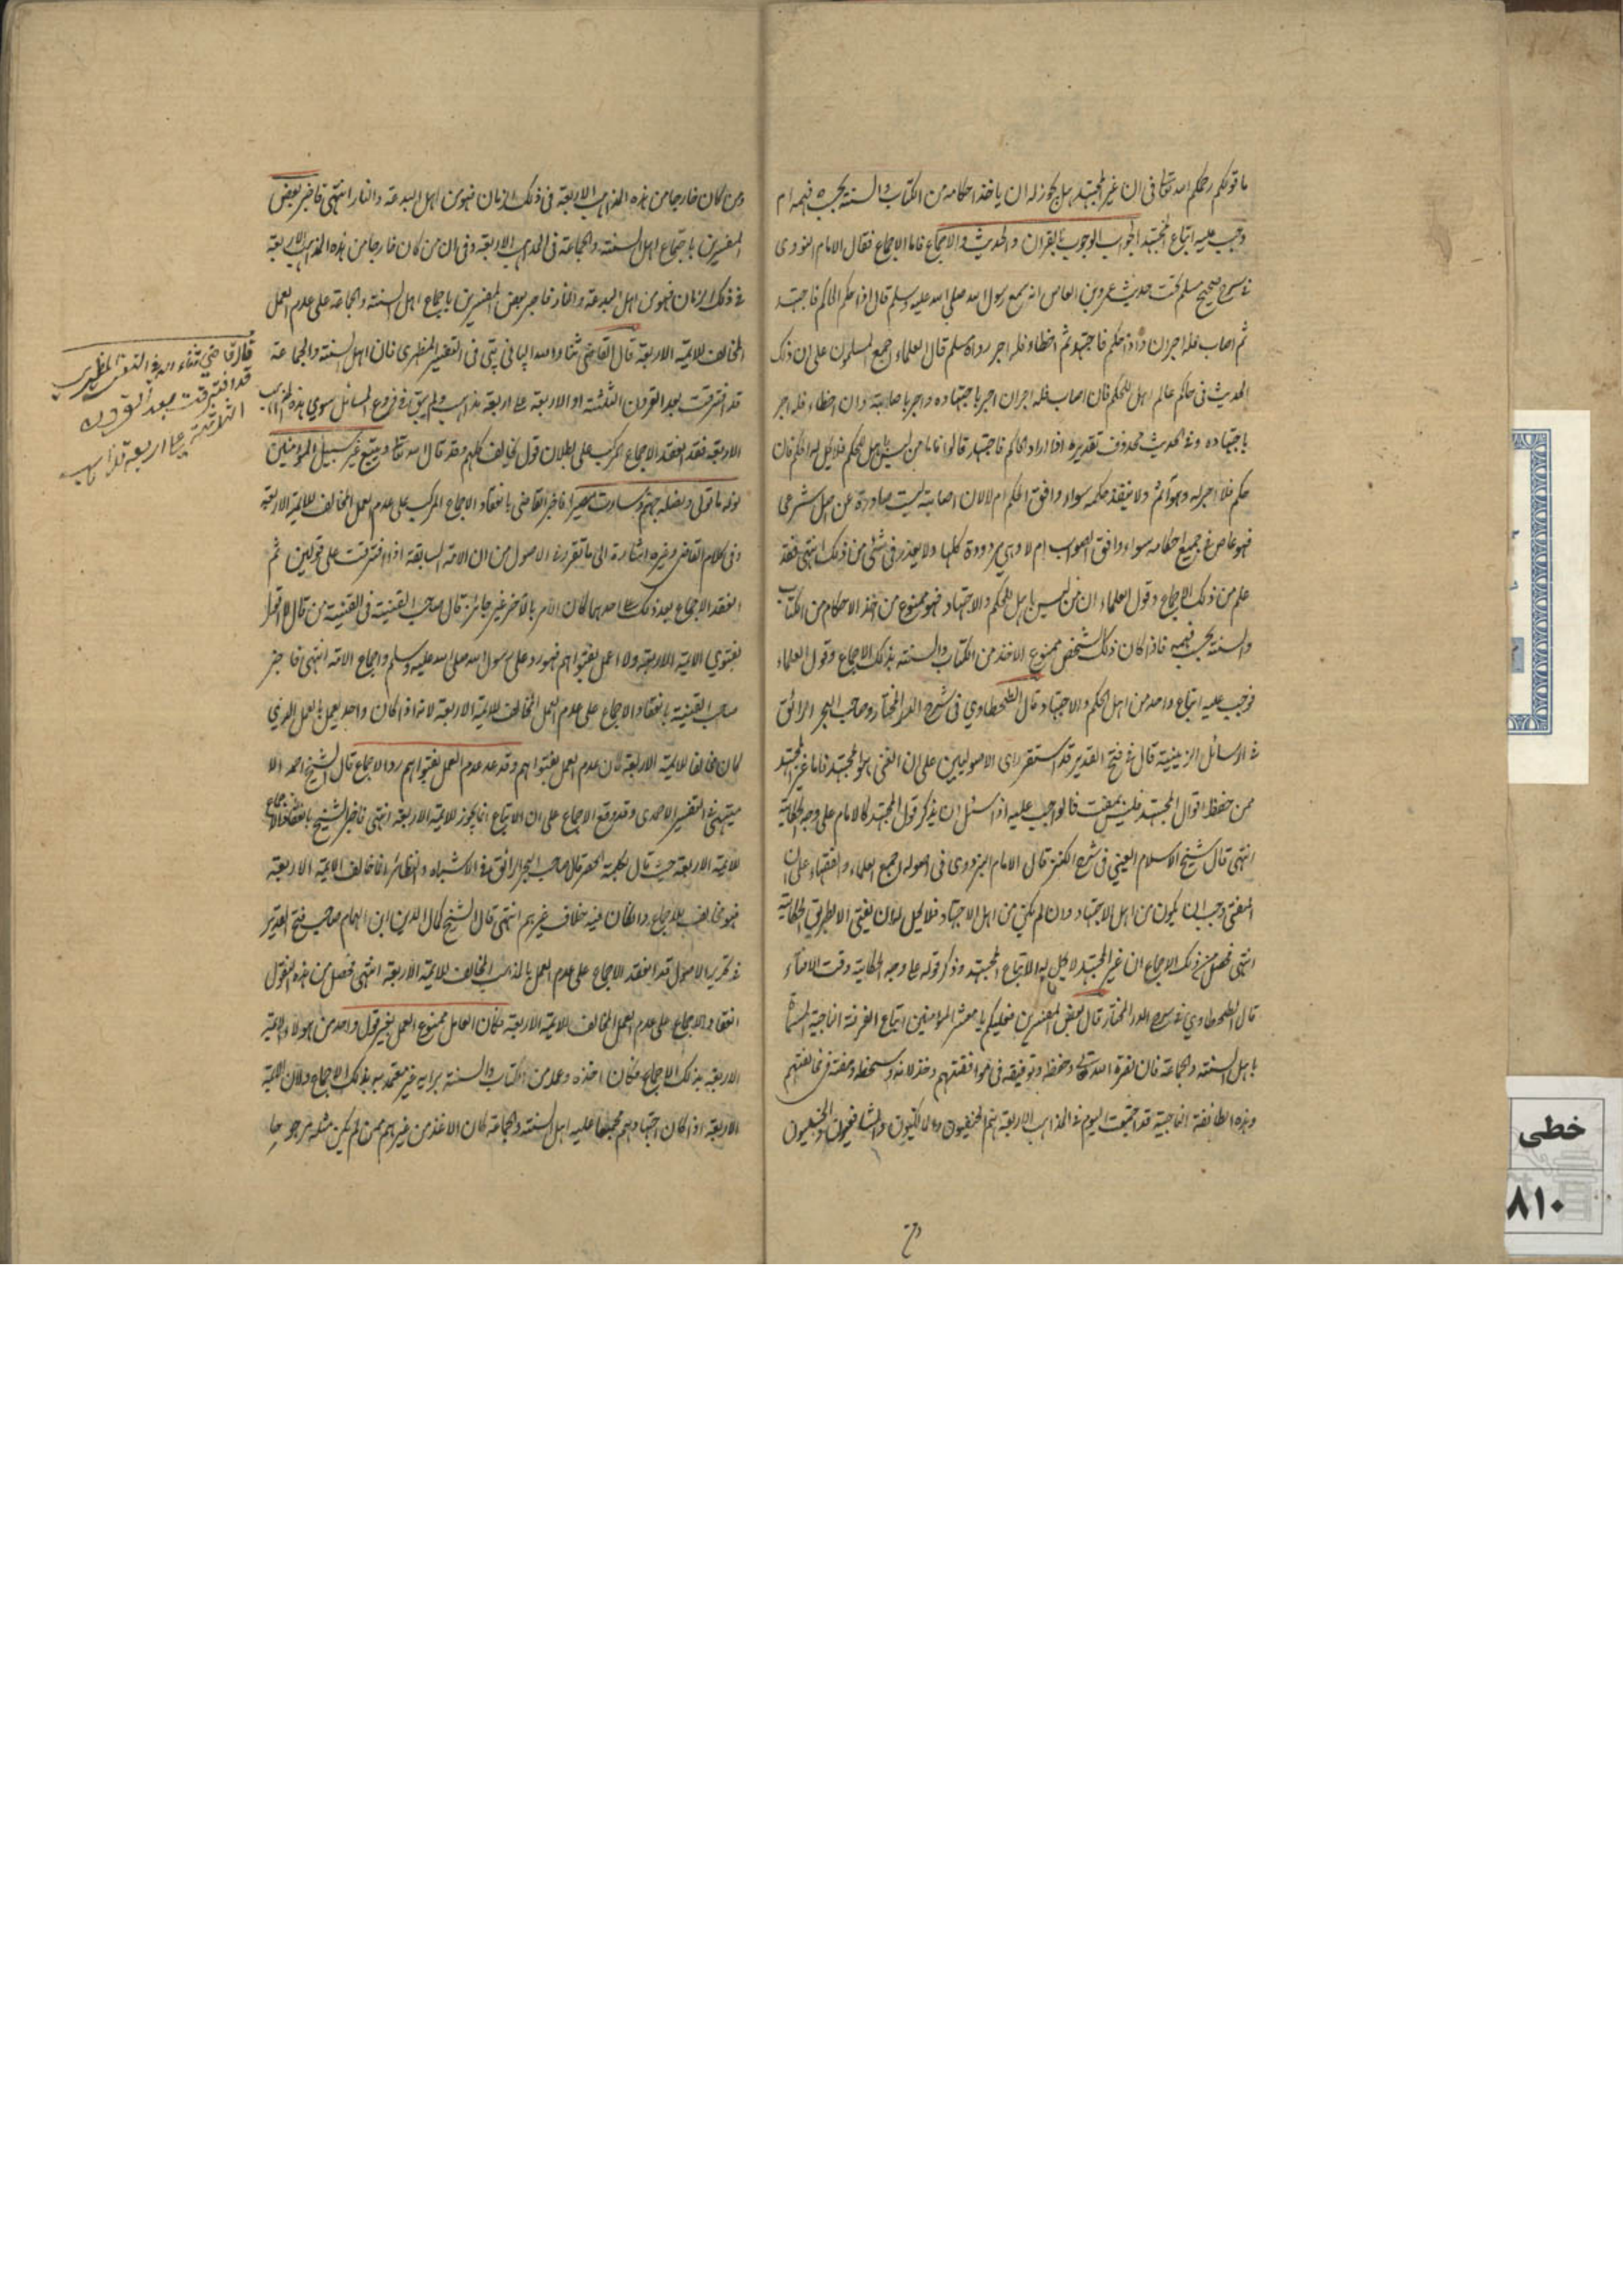 ما قولكم رحمكم الله تعالى في ان غير المجتهد هل يجوز له ان ياخذ احكامه من الكتاب والسنة بحسب فهمه ام
وجب عليه اتباع المجتهد الجواب الوجوب بالقران والحديث والاجماع فاما الاجماع فقال الامام النووى
في شرح صحيح مسلم تحت حديث عمرو بن العاص انه سمع رسول الله صلي الله عليه وسلم قال اذا حكم الحاكم فاجتهد
ثم اصاب فله اجران واذا حكم فاجتهد ثم اخطاء فله اجر رواه مسلم قال العلماء اجمع المسلمون على ان ذلك
الحديث في حاكم عالم اهل للحكم فان اصاب فله اجران اجر باجتهاده واجر باصابته وان اخطاء فله اجر
باجتهاده وفي الحديث محذوف تقديره اذا اراد الحاكم فاجتهد قالوا فاما من ليس باهل للحكم فلا يحل له الحكم فان
حكم فلا اجر له وهو آثم ولا ينفذ حكمه سواء وافق الحكم ام لا لان اصابته ليست صادرة عن اصل شرعى
فهو عاص في جميع احكامه سواء وافق الصواب ام لا وهي مردودة كلها ولا يعذر في شئ من ذلك انتهى فقد
علم من ذلك الاجماع وقول العلماء ان من ليس باهل للحكم والاجتهاد فهو ممنوع من اخذ الاحكام من الكتاب
والسنة بحسب فهمه فاذا كان ذلك الشخص ممنوع الاخذ من الكتاب والسنة بذلك الاجماع وقول العلماء
فوجب عليه اتباع واحد من اهل الحكم والاجتهاد قال الطحطاوي في شرح الدر المختار وصاحب البحر الرائق
في الرسائل الزينية قال في فتح القدير قد استقر راى الاصوليين على ان المفتى هو المجتهد فاما غير المجتهد
ممن حفظ اقوال المجتهد فليس بمفت فالواجب عليه اذا سئل ان يذكر قول المجتهد كالامام على وجه الحكاية
انتهى قال شيخ الاسلام العيني في شرح الكنز قال الامام البزدوى في اصوله اجمع العلماء والفقهاء على ان
المفتى وجب ان يكون من اهل الاجتهاد وان لم يكن من اهل الاجتهاد فلا يحل له ان يفتى الا بطريق الحكاية
انتهى فحصل من ذلك الاجماع ان غير المجتهد لا يحل له الا اتباع المجتهد وذكر قوله على وجه الحكاية وقت الافتاء
قال الطحطاوي في شرح الدر المختار قال بعض المفسرين فعليكم يا معشر المؤمنين اتباع الفرقة الناجية المسماة
باهل السنة والجماعة فان نصرة الله تعالى وحفظه وتوفيقه في موافقتهم وخذلانه وسخطه ومقته في مخالفتهم
وهذه الطائفة الناجية قد اجتمعت اليوم في المذاهب الاربعة هم الحنفيون والمالكيون والشافعيون والحنبليون
ومن
ومن كان خارجا من هذه المذاهب الاربعة في ذلك الزمان فهو من اهل البدعة والنار انتهى فاخبر بعض
المفسرين باجتماع اهل السنة والجماعة في المذاهب الاربعة وفي ان من كان خارجا من هذه المذاهب الاربعة
في ذلك الزمان فهو من اهل البدعة والنار فاخبر بعض المفسرين باجماع اهل السنة والجماعة على عدم العمل
المخالف للائمة الاربعة قال القاضي ثناء الله الپاني پتى في التفسير المظهرى فان اهل السنة والجماعة
قد افترقت بعد القرون الثلثة او الاربعة على اربعة مذاهب ولم يبق في فروع المسائل سوى هذه المذاهب
الاربعة فقد انعقد الاجماع المركب على بطلان قول يخالف كلهم وقد قال الله تعالى ويتبع غير سبيل المؤمنين
نوله ما تولى ونصله جهنم وساءت مصيرا فاخبر القاضى بانعقاد الاجماع المركب على عدم العمل المخالف للائمة الاربعة
وفي كلام القاضى وغيره اشارة الى ما تقرر في الاصول من ان الامة السابقة اذا افترقت على قولين ثم
انعقد الاجماع بعد ذلك على احدهما كان الامر بالآخر غير جائز قال صاحب القنية في القنية من قال لا اقول
بفتوي الائمة الاربعة ولا اعمل بفتواهم فهو رد على رسول الله صلى الله عليه وسلم واجماع الامة انتهى فاخبر
صاحب القنية بانعقاد الاجماع على عدم العمل المخالف للائمة الاربعة لانه اذا كان واحد يعمل بالعمل الذي
كان مخالفا للائمة الاربعة كان عدم العمل بفتواهم وقد عد عدم العمل بفتواهم رد الاجماع قال الشيخ احمد الا
ميتهي في التفسير الاحمدى وقد وقع الاجماع على ان الاتباع انما يجوز للائمة الاربعة انتهى فاخبر الشيخ بانعقاد الاجماع
للائمة الاربعة حيث قال بكلمة الحصر قال صاحب البحر الرائق في الاشباه والنظائر ما خالف الائمة الاربعة
فهو مخالف للاجماع وان كان فيه خلاف غيرهم انتهى قال الشيخ كمال الدين ابن الهمام صاحب فتح القدير
في تحرير الاصول قد انعقد الاجماع على عدم العمل بالمذاهب المخالف للائمة الاربعة انتهى فحصل من هذه النقول
انعقاد الاجماع على عدم العمل المخالف للائمة الاربعة فكان العامل ممنوع العمل بغير قول واحد من هولاء الائمة
الاربعة بذلك الاجماع فكان اخذه وعمله من الكتاب والسنة برايه غير معتمد به بذلك الاجماع ولان الائمة
الاربعة اذا كان اجتهادهم مجمعا عليه اهل السنة والجماعة كان الاخذ من غيرهم ممن لم يكن مثله مرجوحا
قال قاضي ثناء الله في التفسير المظهري
قد افترقت بعد القرون
الثلاثة على اربعة مذاهب
خطی
۸۱۰